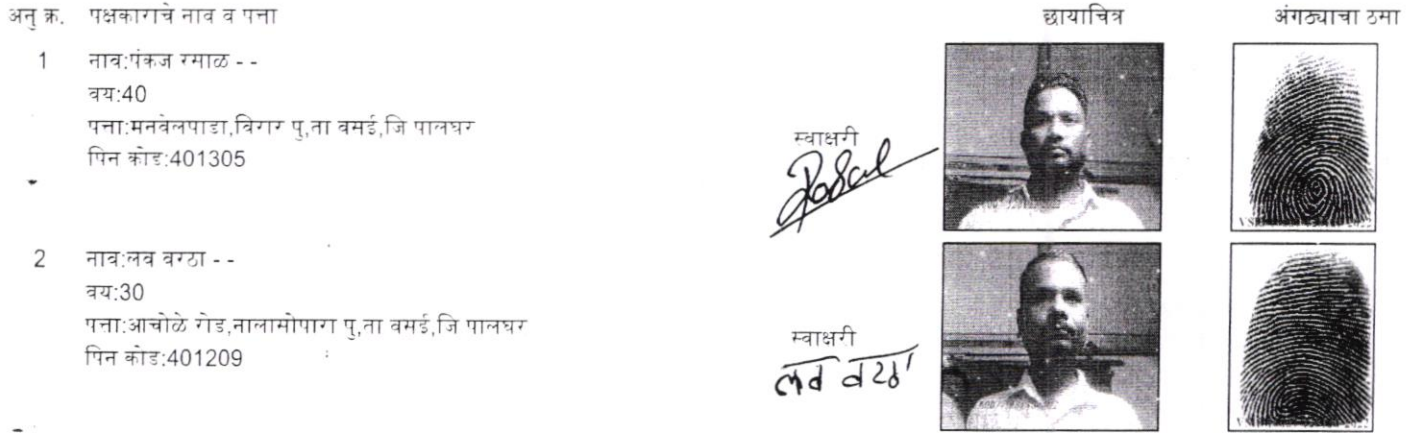 अनु क्र. पक्षकाराचे नाव व पत्ता छायाचित्र अंगठ्याचा ठसा
1 नाव:पंकज रसाळ - -
वय:40
पत्ता:मनवेलपाडा,विरार पु,ता वसई,जि पालघर
पिन कोड:401305
स्वाक्षरी
2 नाव:लव वरठा - -
वय:30
पत्ता:आचोळे रोड,नालासोपारा पु,ता वसई,जि पालघर
पिन कोड:401209
स्वाक्षरी
लव वरठा